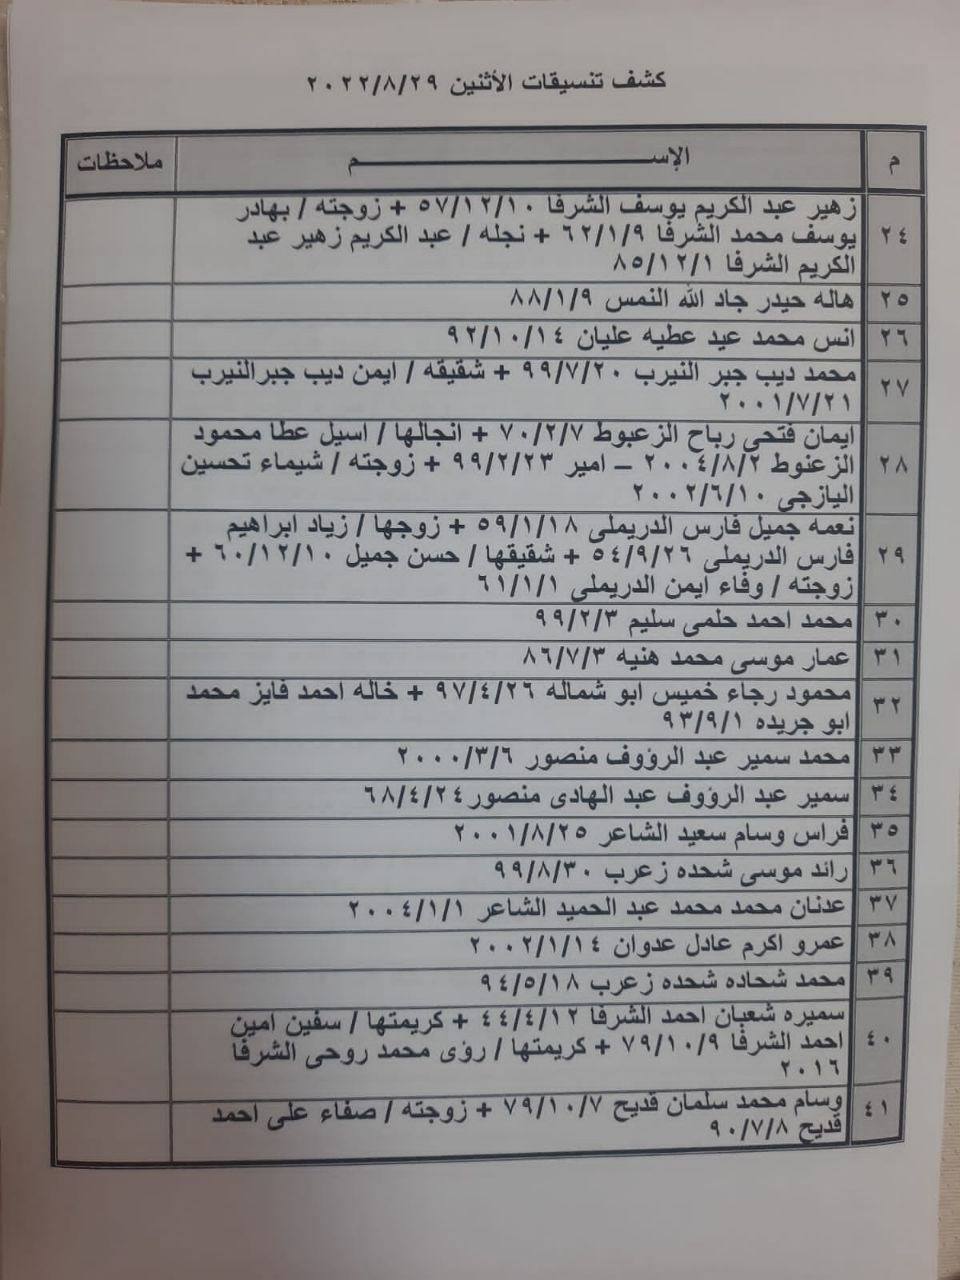 كشف تنسيقات الأثنين ٢٠٢٢/٨/٢٩
م الإســـــــــــــــــــــــم ملاحظات
٢٤ زهير عبد الكريم يوسف الشرفا ٥٧/١٢/١٠ + زوجته / بهادر
يوسف محمد الشرفا ٦٢/١/٩ + نجله / عبد الكريم زهير عبد
الكريم الشرفا ٨٥/١٢/١
٢٥ هاله حيدر جاد الله النمس ٨٨/١/٩
٢٦ انس محمد عيد عطيه عليان ٩٢/١٠/١٤
٢٧ محمد ديب جبر النيرب ٩٩/٧/٢٠ + شقيقه / ايمن ديب جبرالنيرب
٢٠٠١/٧/٢١
٢٨ ايمان فتحى رباح الزعبوط ٧٠/٢/٧ + انجالها / اسيل عطا محمود
الزعنوط ٢٠٠٤/٨/٢ – امير ٩٩/٢/٢٣ + زوجته / شيماء تحسين
اليازجى ٢٠٠٢/٦/١٠
٢٩ نعمه جميل فارس الدريملى ٥٩/١/١٨ + زوجها / زياد ابراهيم
فارس الدريملى ٥٤/٩/٢٦ + شقيقها / حسن جميل ٦٠/١٢/١٠ +
زوجته / وفاء ايمن الدريملى ٦١/١/١
٣٠ محمد احمد حلمى سليم ٩٩/٢/٣
٣١ عمار موسى محمد هنيه ٨٦/٧/٣
٣٢ محمود رجاء خميس ابو شماله ٩٧/٤/٢٦ + خاله احمد فايز محمد
ابو جريده ٩٣/٩/١
٣٣ محمد سمير عبد الرؤوف منصور ٢٠٠٠/٣/٦
٣٤ سمير عبد الرؤوف عبد الهادى منصور٦٨/٤/٢٤
٣٥ فراس وسام سعيد الشاعر ٢٠٠١/٨/٢٥
٣٦ رائد موسى شحده زعرب ٩٩/٨/٣٠
٣٧ عدنان محمد محمد عبد الحميد الشاعر ٢٠٠٤/١/١
٣٨ عمرو اكرم عادل عدوان ٢٠٠٢/١/١٤
٣٩ محمد شحاده شحده زعرب ٩٤/٥/١٨
٤٠ سميره شعبان احمد الشرفا ٤٤/٤/١٢ + كريمتها / سفين امين
احمد الشرفا ٧٩/١٠/٩ + كريمتها / رؤى محمد روحى الشرفا
٢٠١٦
٤١ وسام محمد سلمان قديح ٧٩/١٠/٧ + زوجته / صفاء على احمد
قديح ٩٠/٧/٨